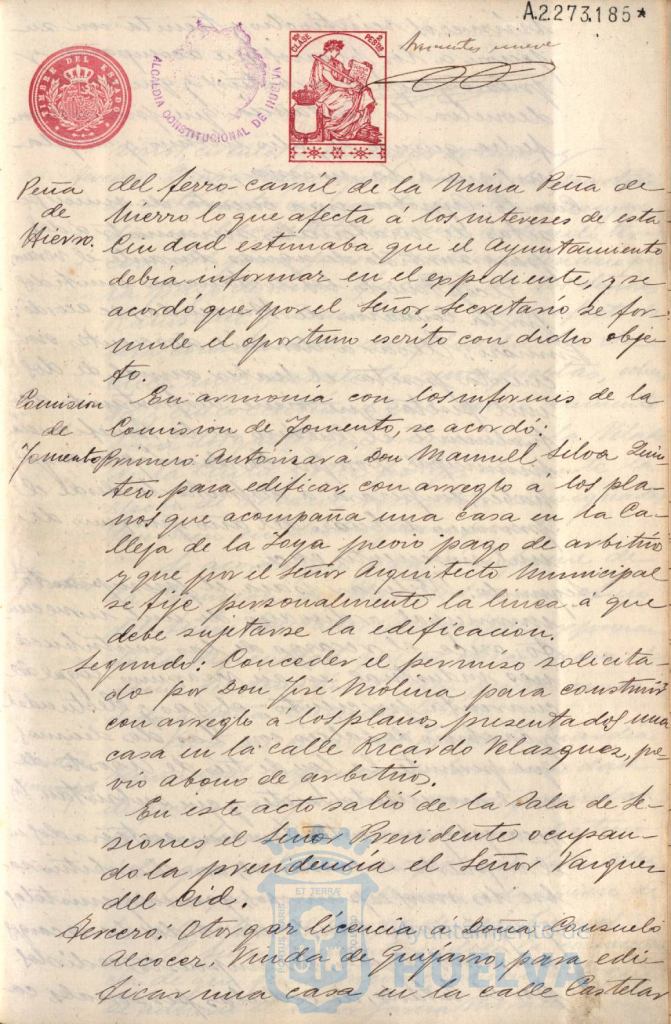 A.2.273.185*
TIMBRE DEL ESTADO
ALCALDIA CONSTITUCIONAL DE HUELVA
CLASE PESETAS
nueve
Peña
de
Hierro.
del ferro-carril de la Mina Peña de
hierro lo que afecta á los intereses de esta
Ciudad estimaba que el Ayuntamiento
debia informar en el expediente, y se
acordó que por el Señor Secretario se for
mule el oportuno escrito con dicho obje
to.
Comision
de
Fomento
En armonía con los informes de la
Comision de Fomento, se acordó:
Primero: Autorizar á Don Manuel Silva Quin
tero para edificar, con arreglo á los pla-
nos que acompaña una casa en la Ca-
lleja de la Joya previo pago de arbitrio
y que por el Señor Arquitecto Municipal
se fije personalmente la linea á que
debe sujetarse la edificacion.
Segundo: Conceder el permiso solicita-
do por Don José Molina para construir
con arreglo á los planos presentados una
casa en la calle Ricardo Velazquez, pre-
vio abono de arbitrios.
En este acto salió de la Sala de Se-
siones el Señor Presidente ocupan-
do la presidencia el Señor Vazquez
del Cid.
Tercero: Otorgar licencia á Doña Consuelo
Alcocer, Viuda de Guijarro, para edi-
ficar una casa en la calle Castelar
ET TERRÆ
Ayuntamiento de
HUELVA